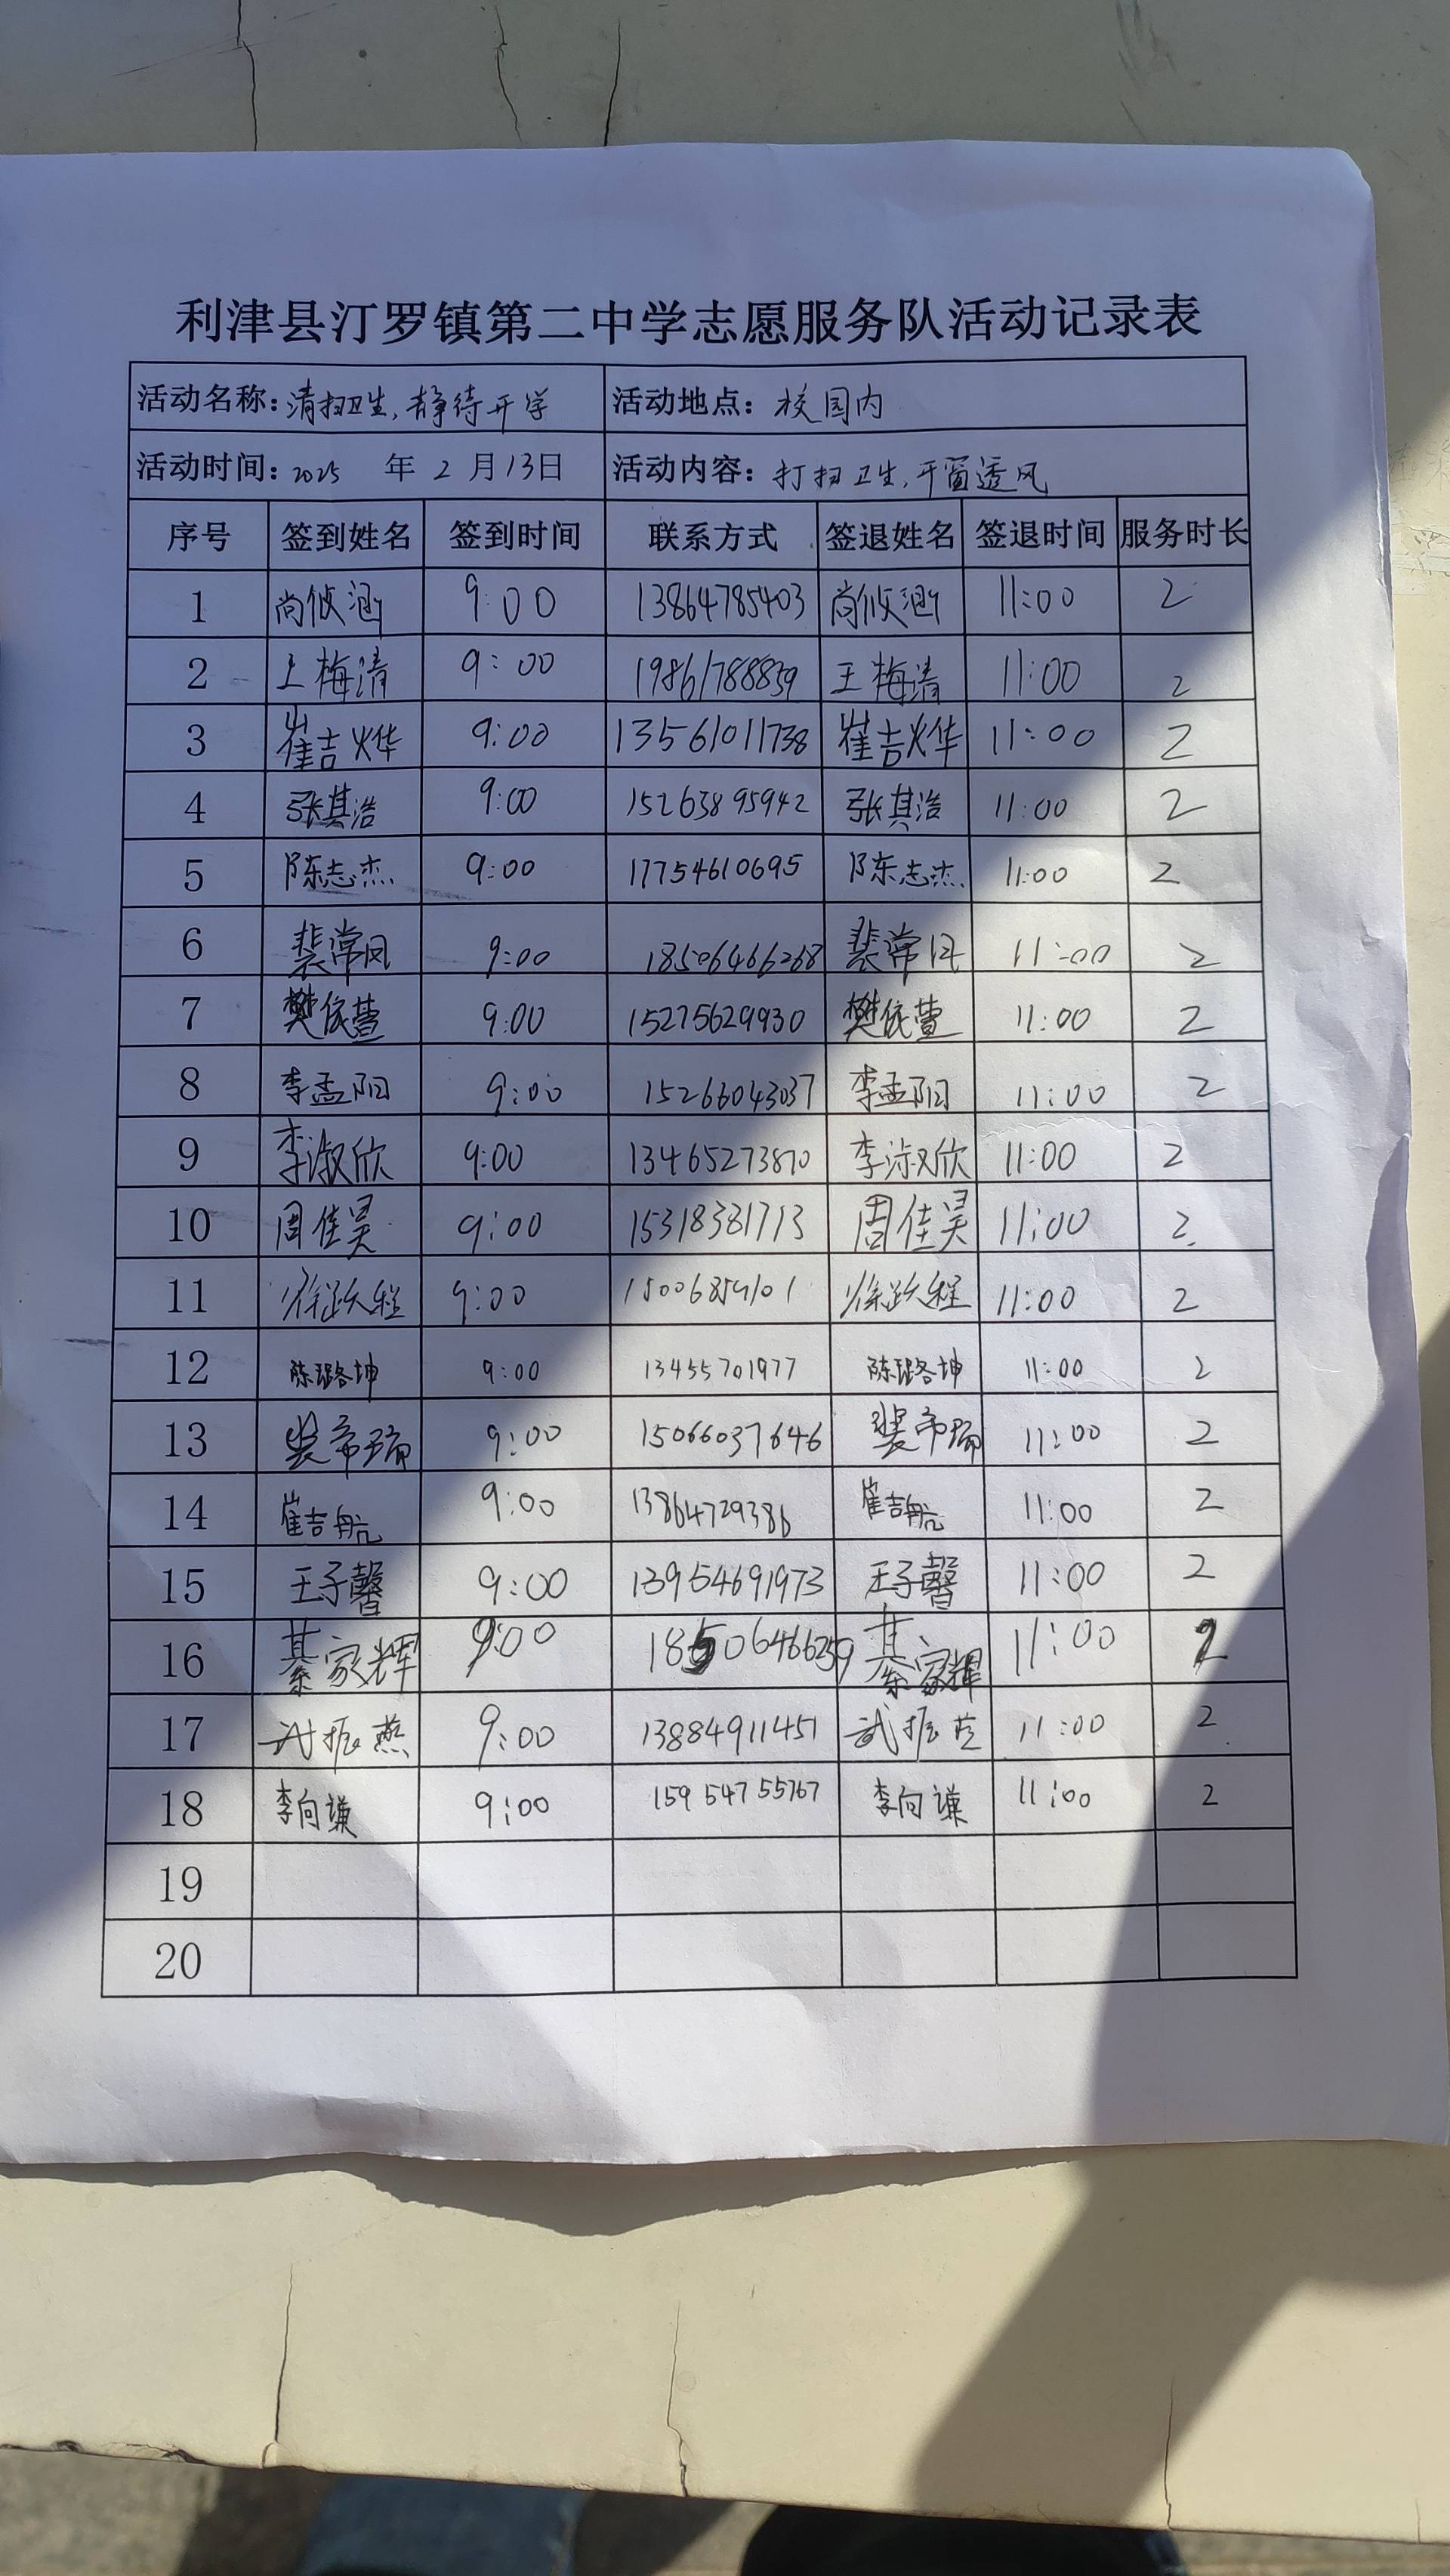 利津县汀罗镇第二中学志愿服务队活动记录表
活动名称：清扫卫生，静待开学 活动地点：校园内
活动时间：2025 年 2 月 13 日 活动内容：打扫卫生，开窗透风
序号 签到姓名 签到时间 联系方式 签退姓名 签退时间 服务时长
1 尚攸涵 9:00 13864785403 尚攸涵 11:00 2
2 王梅清 9:00 19861788839 王梅清 11:00 2
3 崔吉烨 9:00 13561011738 崔吉烨 11:00 2
4 张其浩 9:00 15263895942 张其浩 11:00 2
5 陈志杰 9:00 17754610695 陈志杰 11:00 2
6 裴常风 9:00 18506466268 裴常风 11:00 2
7 樊依萱 9:00 15275629930 樊依萱 11:00 2
8 李孟阳 9:00 15266043037 李孟阳 11:00 2
9 李淑欣 9:00 13465273870 李淑欣 11:00 2
10 周佳昊 9:00 15318381713 周佳昊 11:00 2
11 徐跃程 9:00 徐跃程 11:00 2
12 陈璐坤 9:00 13455701977 陈璐坤 11:00 2
13 裴帝瑞 9:00 15066037646 裴帝瑞 11:00 2
14 崔吉航 9:00 13864729386 崔吉航 11:00 2
15 王子馨 9:00 13954691973 王子馨 11:00 2
16 綦家辉 9:00 18506466259 綦家辉 11:00 2
17 武振燕 9:00 13884911451 武振 11:00 2
18 李向谦 9:00 15954755767 李向谦 11:00 2
19
20